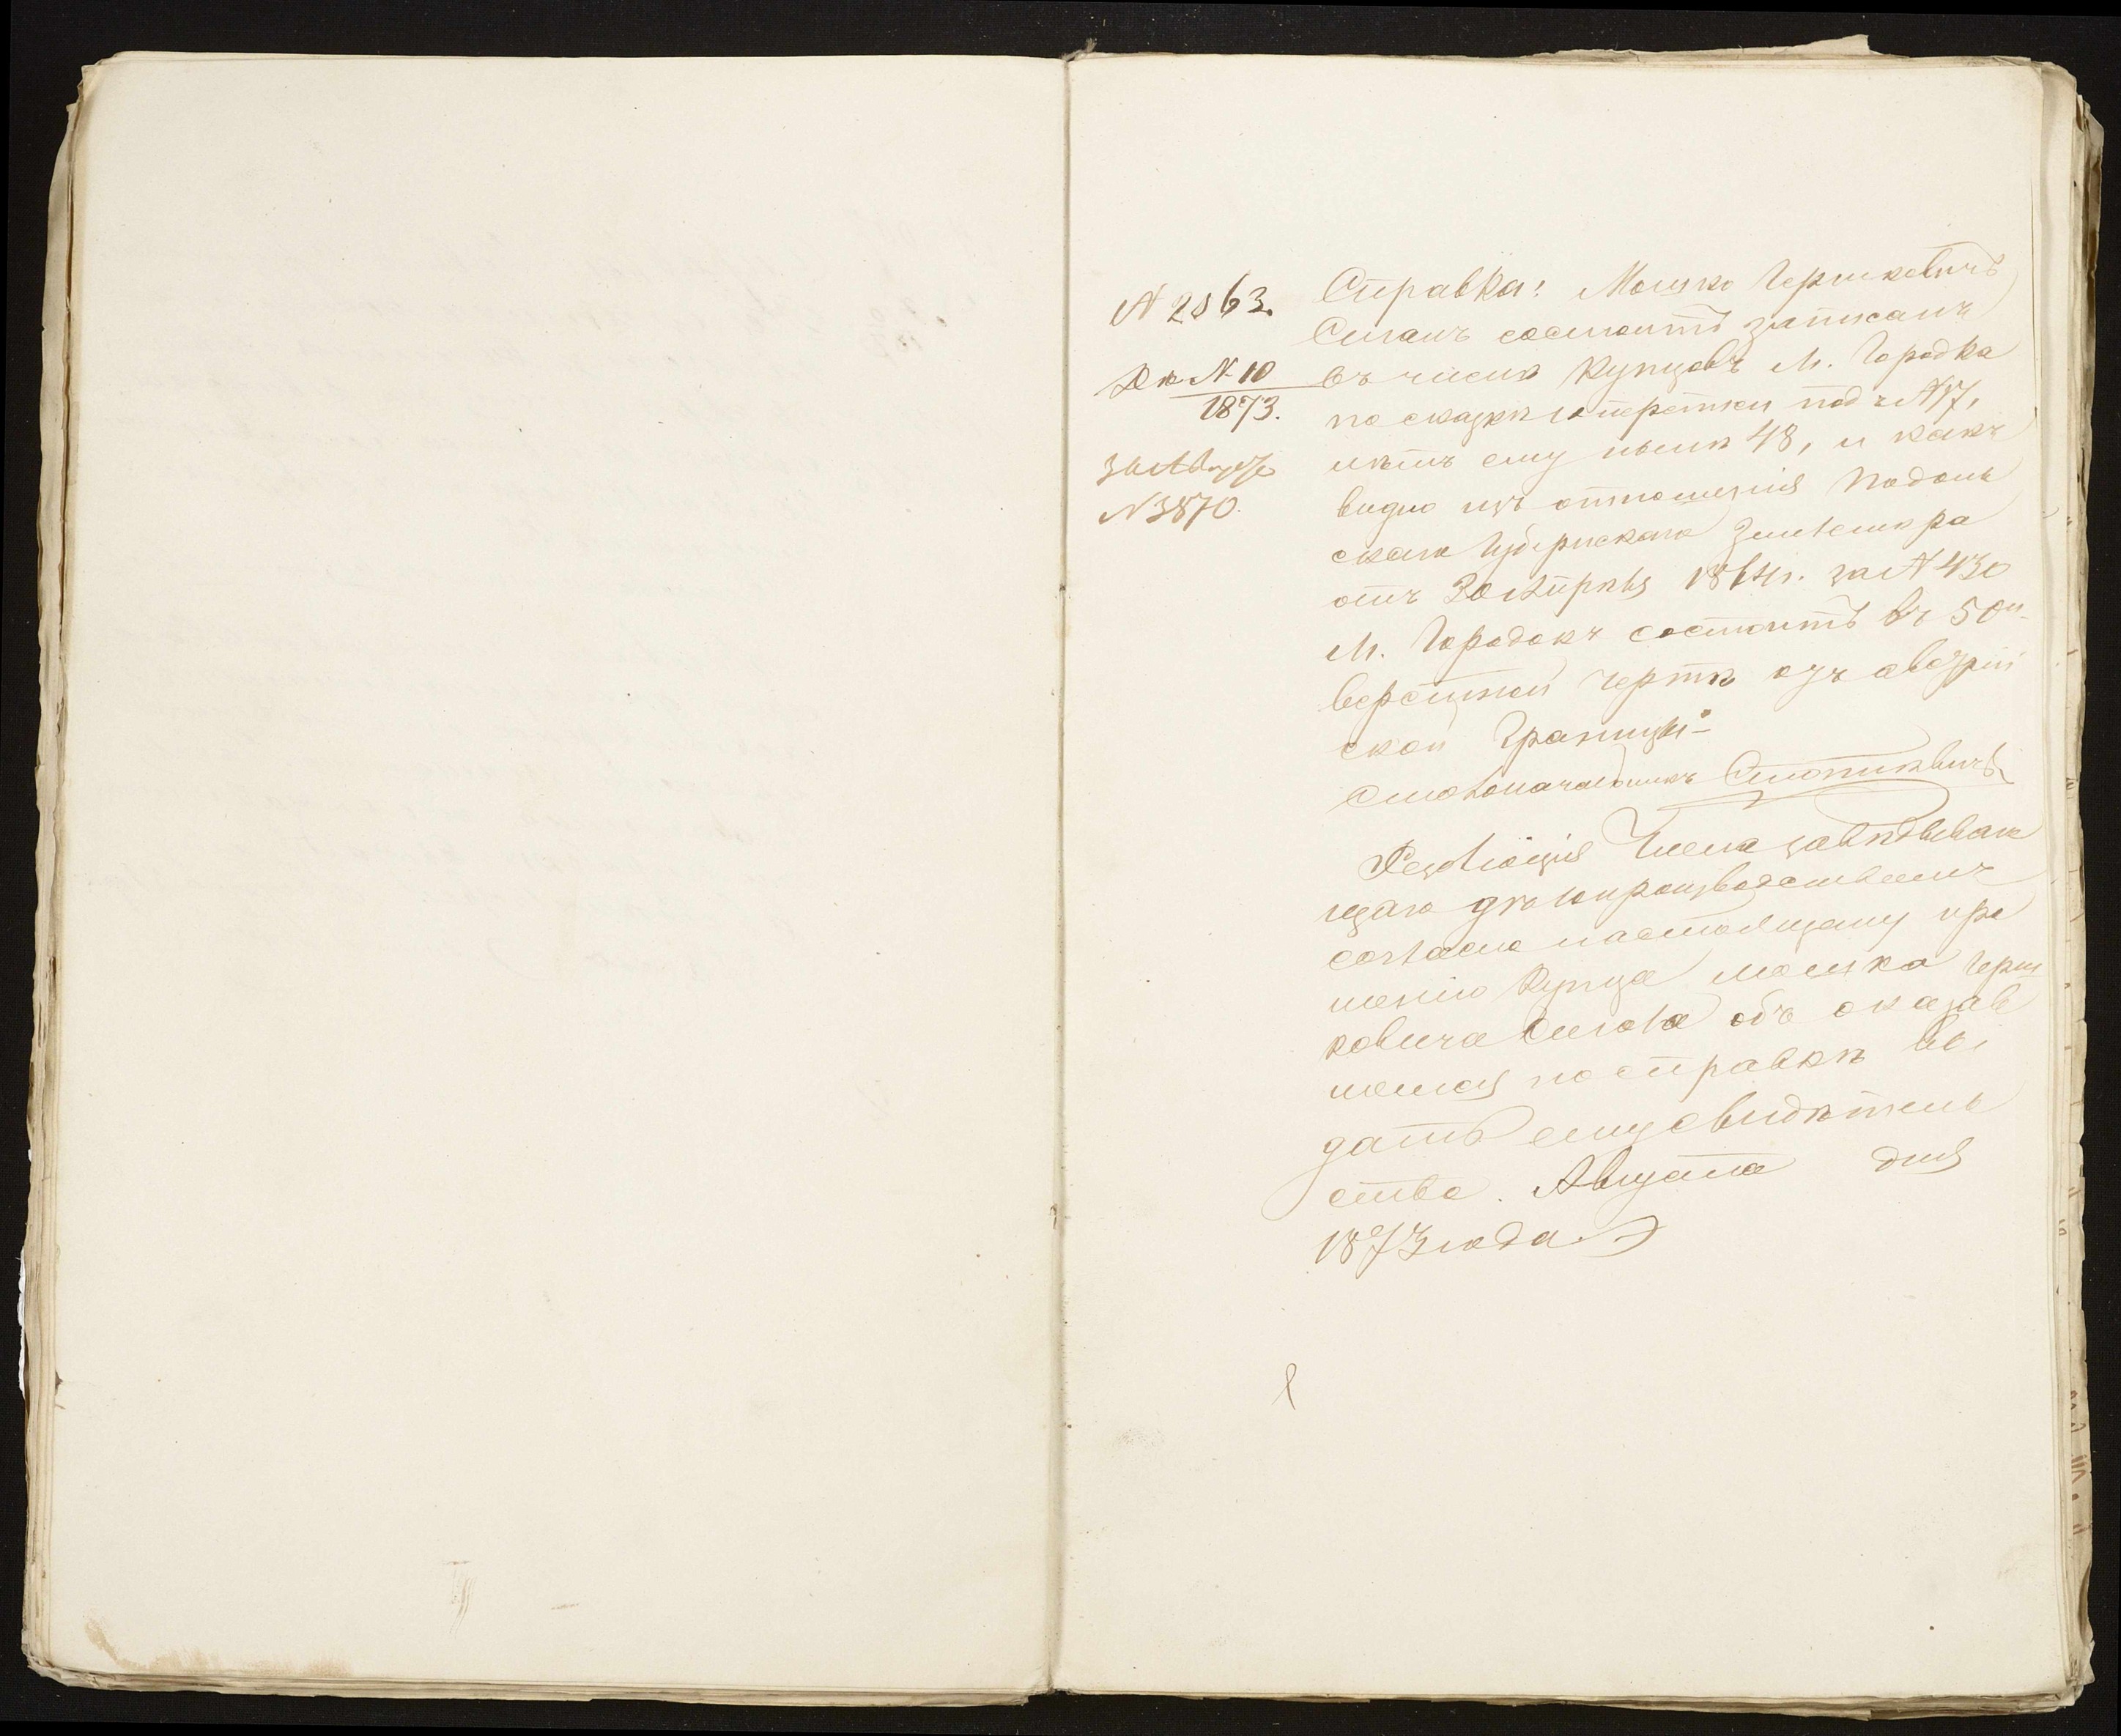 N 2863.
Дѣ N. 10
1873.
3 Августа
N 3870.
Справка: Мошко Гершковичъ
Сигалъ состоитъ записанъ
въ числѣ Купцовъ М. Городка
по сказкѣ 10 перепи подъ N 17,
лѣтъ ему нынѣ 48, и какъ
видно изъ отношенія Подоль
скаго Губернскаго Землемѣра
отъ 30 Апрѣля 1864 г. за N 430
М. Городокъ состоитъ въ 50и
верстной чертѣ отъ австрій
ской Границы
Столоначальникъ
Резолюція Члена завѣдывав
щаго дѣлопроизводствомъ
согласно настоящему про
шенію Купца Мошка Герш
ковича Сигала объ оказав
шемся по справкѣ вы
дать ему свидѣтель
ство. Августа дня
1873 года